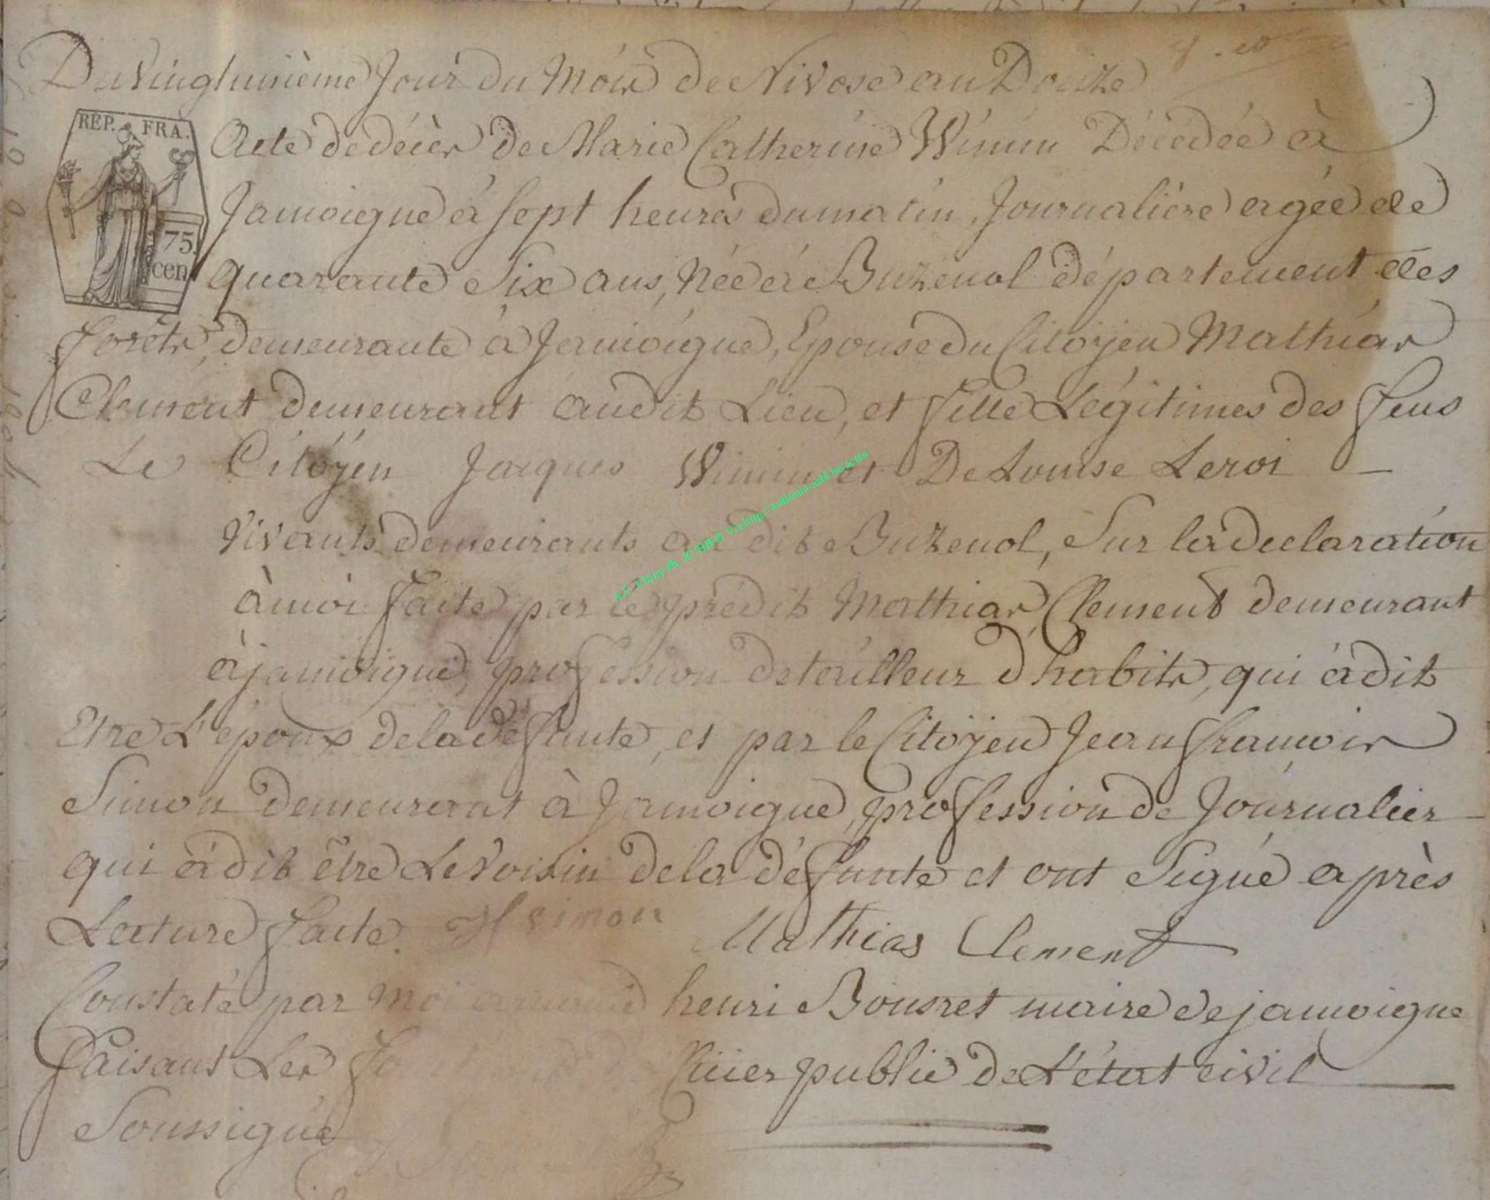 Du Vinghuitième Jour du Mois de Nivose an Douze
REP. FRA.
75 cen
Acte de décès de Marie Catherine Winin Décédée à
Jamoigne à sept heures du matin, Journalière agée de
quarante Six ans, Née à Buzenol département des
forêts, demeurante à Jamoigne, Epouse du Citoyen Mathias
Clement demeurant audit Lieu, et fille Légitimes des feus
Le Citoyen Jacques Winin et De Louise Leroi —
Vivants demeurants a dit Buzenol, Sur la declaration
à moi faite par le prédit Mathias Clement demeurant
à jamoigne, profession de tailleur d'habits, qui à dit
Etre L'époux de la défunte, et par le Citoyen Jean françois
Simon demeurant à Jamoigne, profession de Journalier
qui à dit être Le Voisin de la défunte et ont Signé après
Lecture faite. simon
Mathias Clement
Constaté par Moi henri Bousret maire de jamoigne
faisant Les public de L'état civil
Soussigné